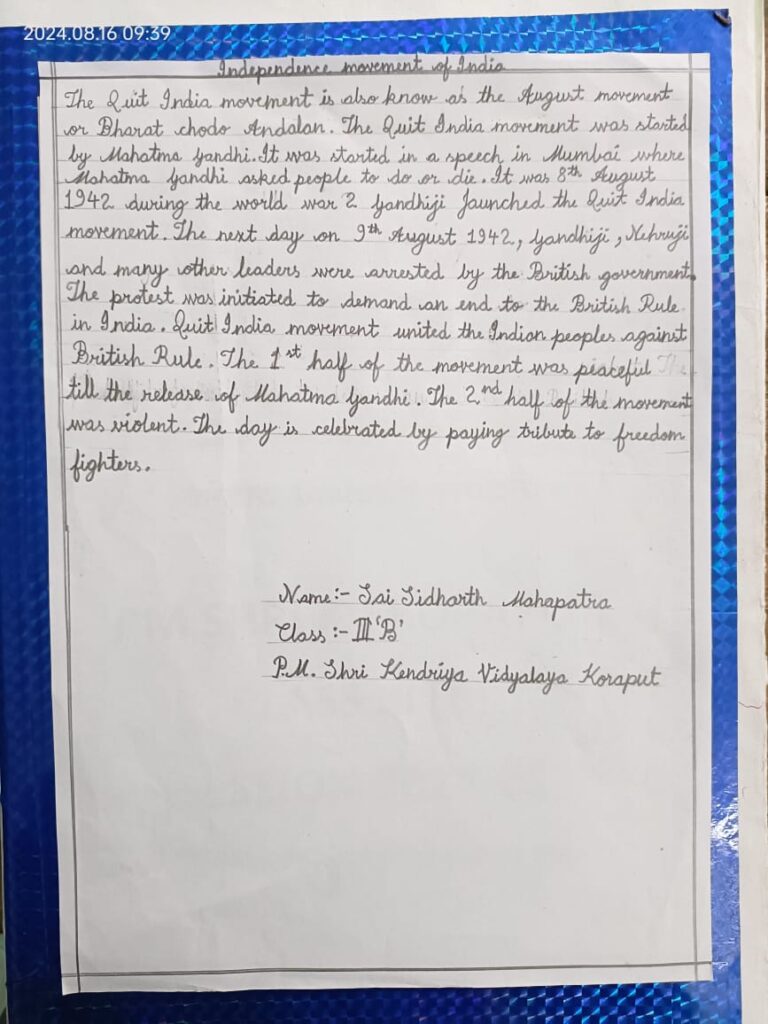 2024.08.16 09:39
Independence movement of India
The Quit India movement is also know as the August movement
or Bharat chodo Andalan. The Quit India movement was started
by Mahatma Gandhi. It was started in a speech in Mumbai where
Mahatma Gandhi asked people to do or die. It was 8th August
1942 during the world war 2 Gandhiji launched the Quit India
movement. The next day on 9th August 1942, Gandhiji, Nehruji
and many other leaders were arrested by the British government.
The protest was initiated to demand an end to the British Rule
in India. Quit India movement united the Indian peoples against
British Rule. The 1st half of the movement was peaceful
till the release of Mahatma Gandhi. The 2nd half of the movement
was violent. The day is celebrated by paying tribute to freedom
fighters.
Name:- Sai Sidharth Mahapatra
Class:- III 'B'
P.M. Shri Kendriya Vidyalaya Koraput